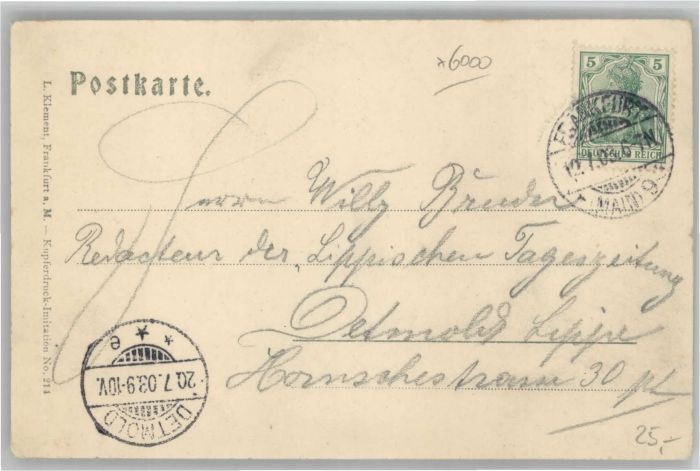 Postkarte.
x6000
5 5
DEUTSCHES REICH
FRANKFURT
(MAIN) 9
Herrn Willy Bruder
Redacteur der „Lippischen Tageszeitung
Detmold Lippe
Hornschestrasse 30 pt
DETMOLD
20.7.03.9-10V.
* * e
25,-
L. Klement, Frankfurt a. M. — Kupferdruck-Imitation No. 214